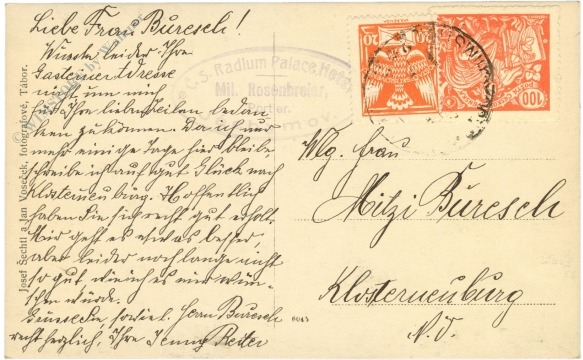 Liebe Frau Buresch!
Wusste leider Ihre
Gasteiner Adresse
nicht um mich
für Ihre lieben Zeilen bedan-
ken zu können. Da ich nur
mehr einige Tage hier bleibe
schreibe ich auf gut Glück nach
Klosterneuburg. Hoffentlich
haben Sie sich recht gut erholt.
Mir geht es etwas besser,
aber leider noch lange nicht
so gut, wie ich es mir wün-
schen würde.
Grüsse Sie, sowie l. Herrn Buresch
recht herzlich, Ihre Jenny Reiter
Josef Šechtl a Jan Voseček, fotografové, Tábor.
C.S. Radium Palace Hotel
Mil. Rosenbreier,
Portier.
20
100
Wlg. Frau
Mitzi Buresch
Klosterneuburg
N.Ö.